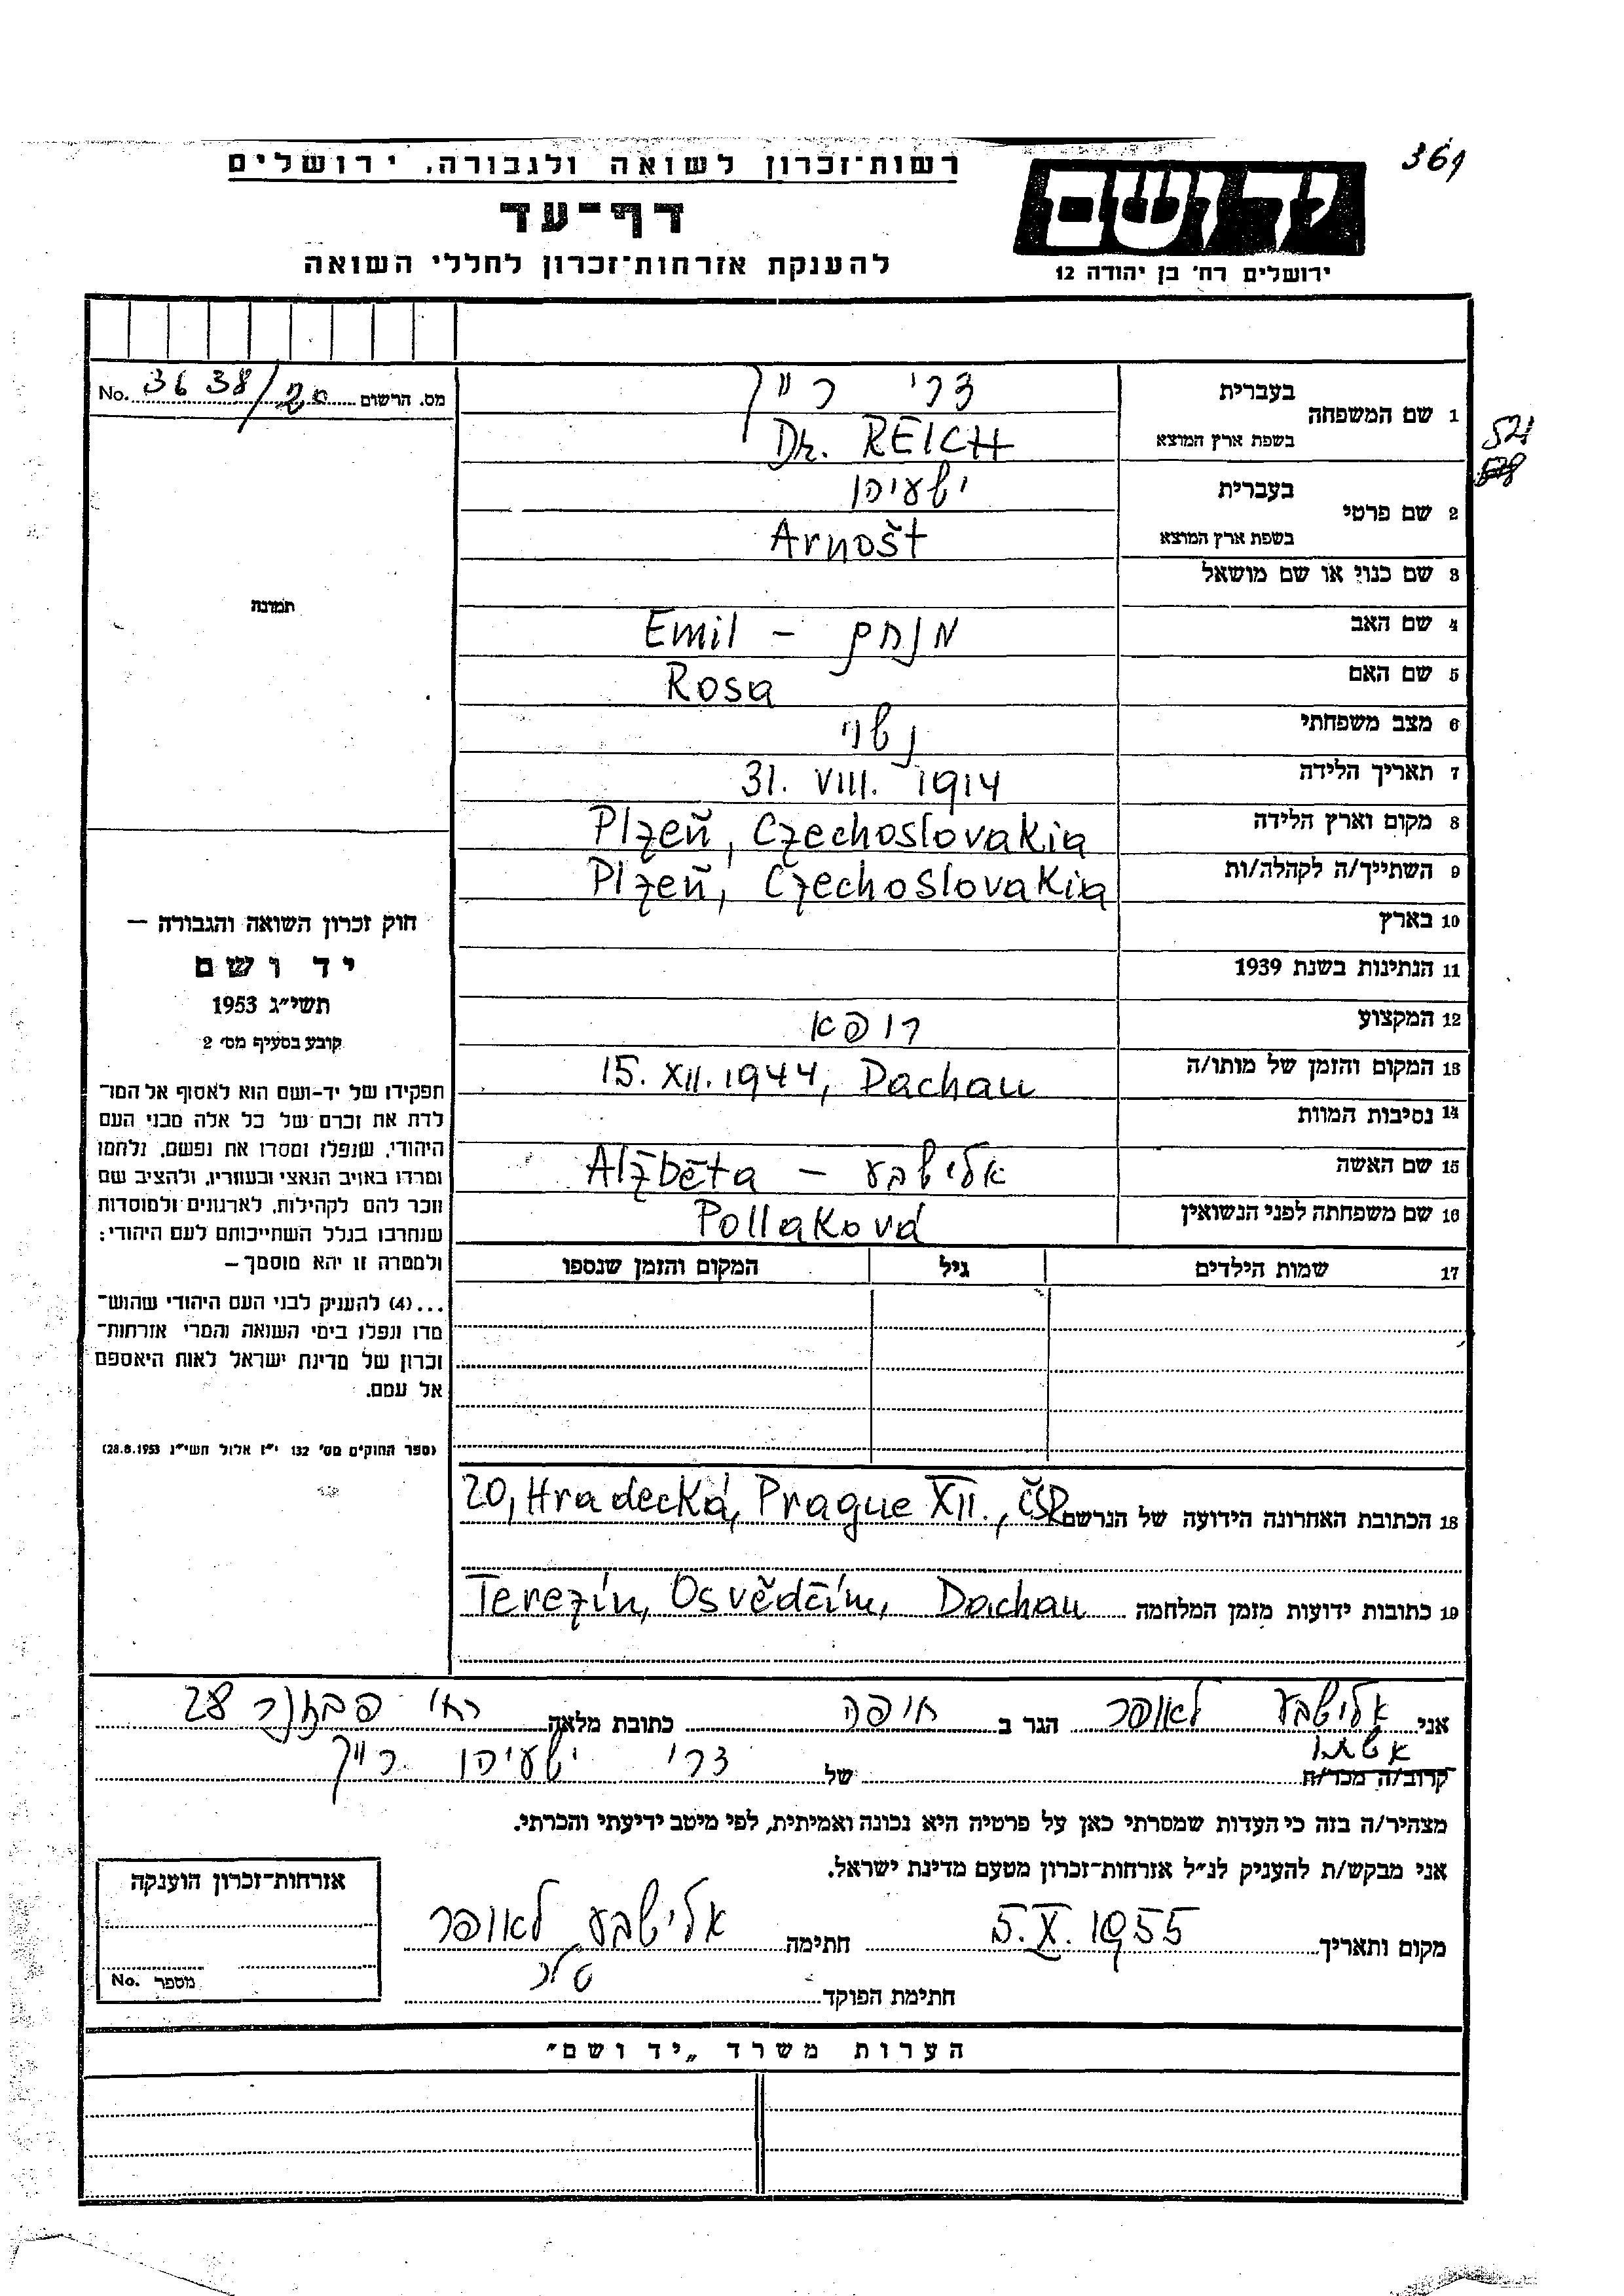 369
רשות־זכרון לשואה ולגבורה, ירושלים
דף־עד
להענקת אזרחות־זכרון לחללי השואה
יד ושם
ירושלים רח' בן יהודה 12
מס. הרשום 3638/20 No.
1 שם המשפחה
בעברית דר' רייך
בשפת ארץ המוצא Dr. REICH
521
2 שם פרטי
בעברית ישעיהו
בשפת ארץ המוצא Arnošt
3 שם כנוי או שם מושאל
4 שם האב מנחם - Emil
5 שם האם Rosa
6 מצב משפחתי נשוי
7 תאריך הלידה 31. VIII. 1914
8 מקום וארץ הלידה Plzeň, Czechoslovakia
9 השתייך/ה לקהלה/ות Plzeň, Czechoslovakia
10 בארץ
11 הנתינות בשנת 1939
12 המקצוע רופא
13 המקום והזמן של מותו/ה 15. XII. 1944, Dachau
14 נסיבות המוות
15 שם האשה אלישבע - Alžběta
16 שם משפחתה לפני הנשואין Pollaková
17 שמות הילדים גיל המקום והזמן שנספו
18 הכתובת האחרונה הידועה של הנרשם 20, Hradecká, Prague XII., ČSR
19 כתובות ידועות מזמן המלחמה Terezín, Osvědčím, Dachau
תמונה
חוק זכרון השואה והגבורה –
יד ושם
תשי"ג 1953
קובע בסעיף מס' 2
תפקידו של יד-ושם הוא לאסוף אל המו־
לדת את זכרם של כל אלה מבני העם
היהודי, שנפלו ומסרו את נפשם, נלחמו
ומרדו באויב הנאצי ובעוזריו, ולהציב שם
וזכר להם לקהילות, לארגונים ולמוסדות
שנחרבו בגלל השתייכותם לעם היהודי;
ולמטרה זו יהא מוסמך –
...(4) להעניק לבני העם היהודי שהוש־
מדו ונפלו בימי השואה והמרי אזרחות־
זכרון של מדינת ישראל לאות היאספם
אל עמם.
(ספר החוקים מס' 132 י"ז אלול תשי"ג 28.8.1953)
אני אלישבע לאופר הגר ב חיפה כתובת מלאה רח' 28
אשתו
קרוב/ה מכר/ה של דר' ישעיהו רייך
מצהיר/ה בזה כי העדות שמסרתי כאן על פרטיה היא נכונה ואמיתית, לפי מיטב ידיעתי והכרתי.
אני מבקש/ת להעניק לנ"ל אזרחות־זכרון מטעם מדינת ישראל.
מקום ותאריך 5.X.1955 חתימה אלישבע לאופר
חתימת הפוקד
אזרחות־זכרון הוענקה
מספר No.
הערות משרד „יד ושם"